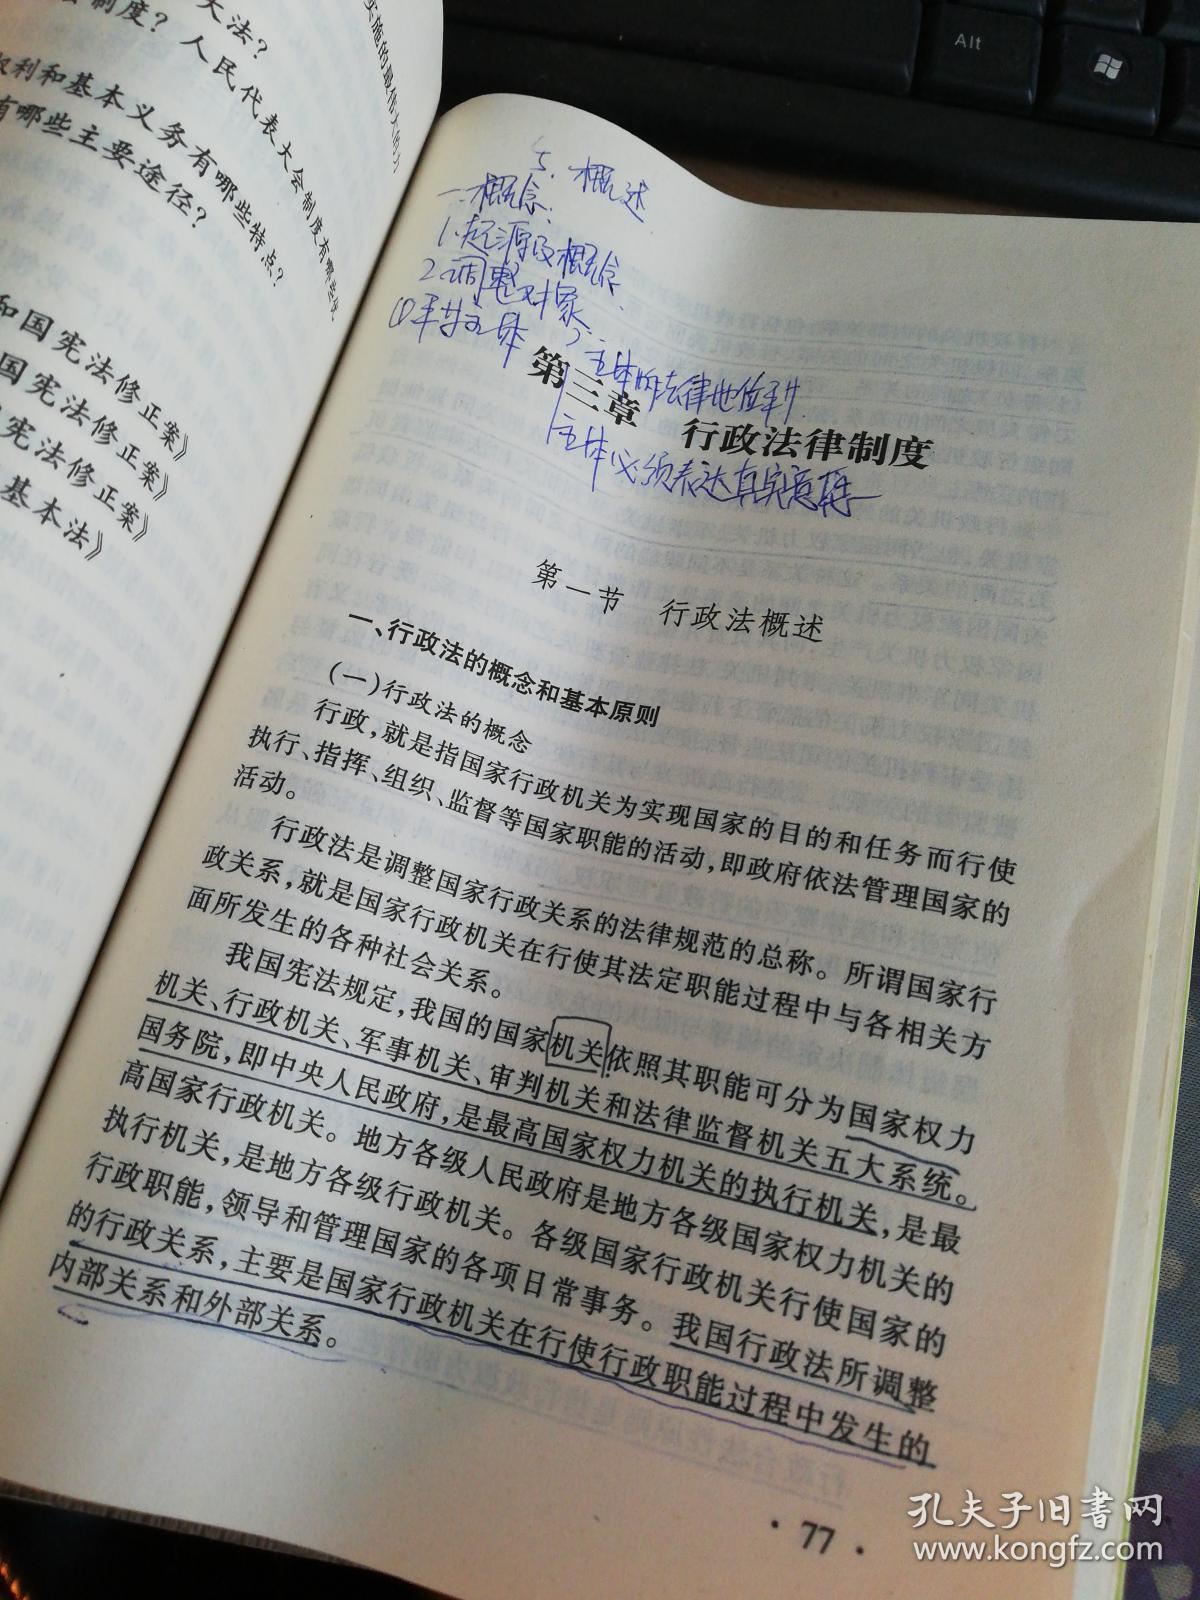 大法?
制度?人民代表大会制度有哪些优
权利和基本义务有哪些特点?
有哪些主要途径?
和国宪法修正案》
国宪法修正案》
宪法修正案》
基本法》
5. 概述
一.概念:
1.起源及概念
2.调整对象
①平等主体
主体的法律地位平等
主体必须表达真实意
第三章 行政法律制度
第一节 行政法概述
一、行政法的概念和基本原则
(一)行政法的概念
行政,就是指国家行政机关为实现国家的目的和任务而行使
执行、指挥、组织、监督等国家职能的活动,即政府依法管理国家的
活动。
行政法是调整国家行政关系的法律规范的总称。所谓国家行
政关系,就是国家行政机关在行使其法定职能过程中与各相关方
面所发生的各种社会关系。
我国宪法规定,我国的国家机关依照其职能可分为国家权力
机关、行政机关、军事机关、审判机关和法律监督机关五大系统。
国务院,即中央人民政府,是最高国家权力机关的执行机关,是最
高国家行政机关。地方各级人民政府是地方各级国家权力机关的
执行机关,是地方各级行政机关。各级国家行政机关行使国家的
行政职能,领导和管理国家的各项日常事务。我国行政法所调整
的行政关系,主要是国家行政机关在行使行政职能过程中发生的
内部关系和外部关系。
· 77 ·
Alt
孔夫子旧书网
www.kongfz.com